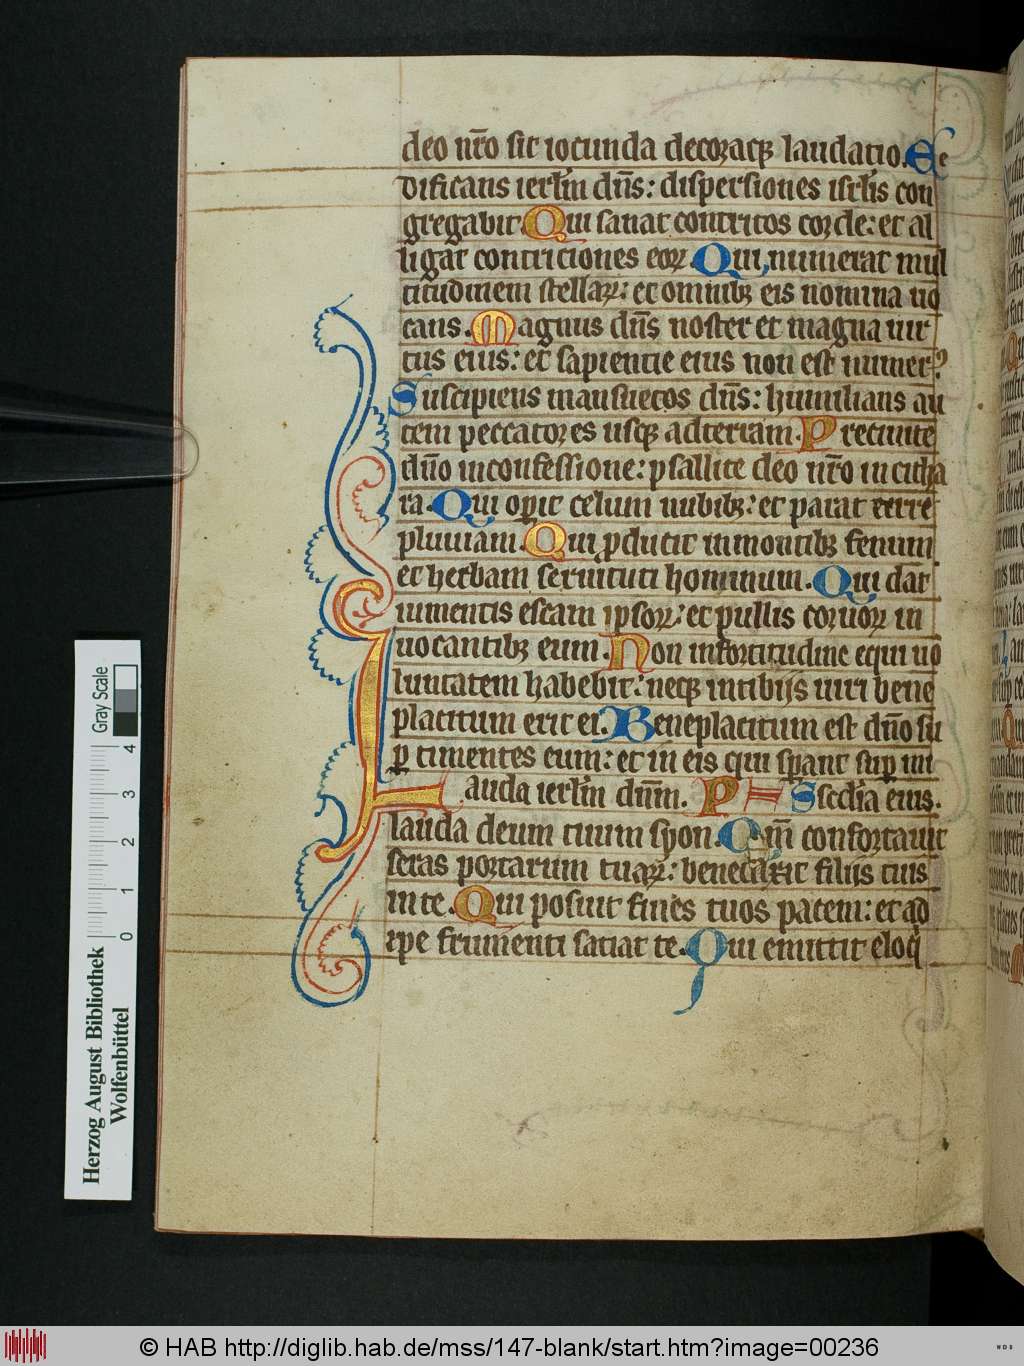 deo nr̄o sit iocunda decoraqꝫ laudatio. Ae
dificans ierl̄m dn̄s: dispersiones isrl̄is con
gregabit. Qui sanat contritos corde: et al
ligat contriciones eoꝝ. Qui numerat mul
titudinem stellaꝝ: et omnibꝫ eis nomina uo
cans. Magnus dn̄s noster et magna uir
tus eius: et sapientie eius non est numer᷒
Suscipiens mansuetos dn̄s: humilians au
tem peccatores usqꝫ ad terram. Precinite
dn̄o in confessione: psallite deo nr̄o in citha
ra. Qui opit celum nubibꝫ: et parat terre
pluuiam. Qui ꝓducit in montibꝫ fenum
et herbam seruituti hominum. Qui dat
iumentis escam ipsoꝝ: et pullis coruoꝝ in
uocantibꝫ eum. Non in fortitudine equi uo
luntatem habebit: neqꝫ in tibijs uiri bene
placitum erit ei. Beneplacitum est dn̄o su
ꝑ timentes eum: et in eis qui sꝑant suꝑ mi
Lauda ierl̄m dn̄m. P S sc̄dia eius.
lauda deum tuum syon. Qm̄ confortauit
seras portarum tuaꝝ: benedixit filijs tuis
in te. Qui posuit fines tuos pacem: et ad
ipe frumenti satiat te. Qui emittit eloq̄
Herzog August Bibliothek
Wolfenbüttel
0 1 2 3 4
Gray Scale
© HAB http://diglib.hab.de/mss/147-blank/start.htm?image=00236